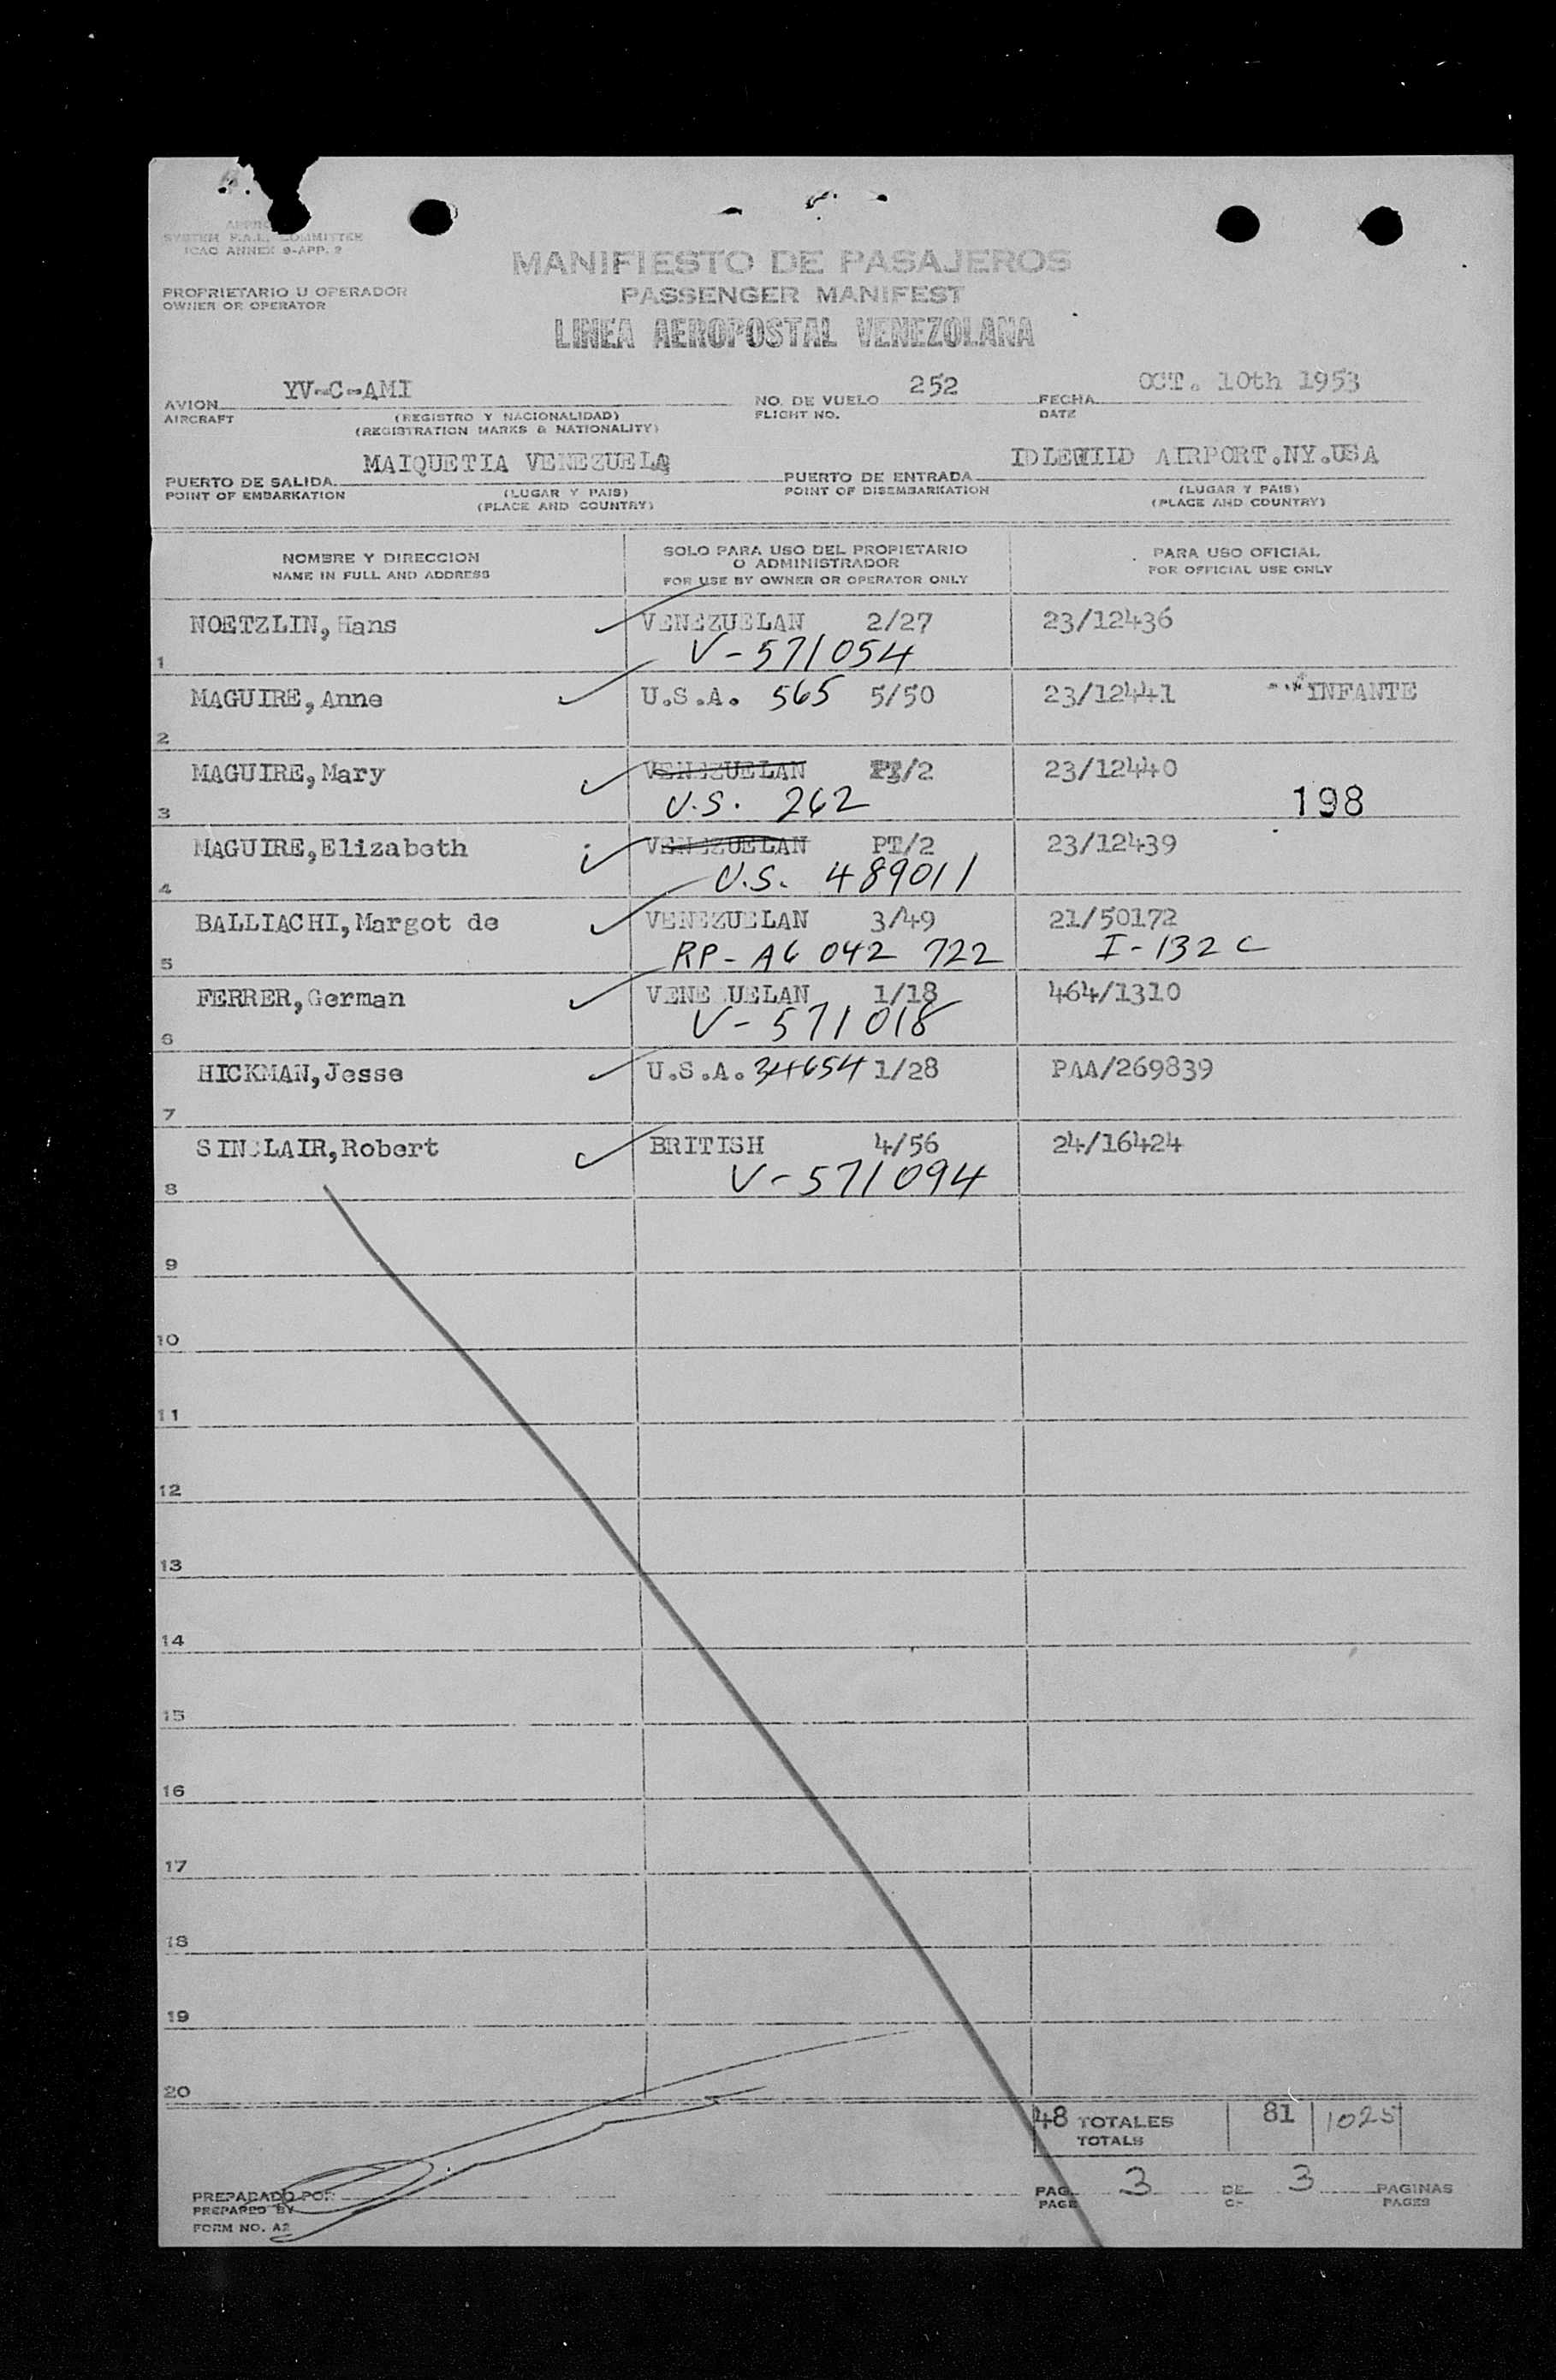 SYSTEM F.A.L. COMMITTEE
ICAO ANNEX 9-APP. 2
MANIFIESTO DE PASAJEROS
PROPRIETARIO U OPERADOR
OWNER OR OPERATOR
PASSENGER MANIFEST
LINEA AEROPOSTAL VENEZOLANA
AVION YV-C-AMI NO. DE VUELO 252 FECHA OCT. 10th 1953
AIRCRAFT (REGISTRO Y NACIONALIDAD) FLIGHT NO. DATE
(REGISTRATION MARKS & NATIONALITY)
PUERTO DE SALIDA MAIQUETIA VENEZUELA PUERTO DE ENTRADA IDLEWIILD AIRPORT.NY.USA
POINT OF EMBARKATION (LUGAR Y PAIS) POINT OF DISEMBARKATION (LUGAR Y PAIS)
(PLACE AND COUNTRY) (PLACE AND COUNTRY)
NOMBRE Y DIRECCION SOLO PARA USO DEL PROPIETARIO PARA USO OFICIAL
O ADMINISTRADOR
NAME IN FULL AND ADDRESS FOR USE BY OWNER OR OPERATOR ONLY FOR OFFICIAL USE ONLY
NOETZLIN,Hans VENEZUELAN 2/27 23/12436
1 V-571054
MAGUIRE,Anne U.S.A. 565 5/50 23/12441 INFANTE
2
MAGUIRE,Mary VENEZUELAN PT/2 23/12440
3 U.S. 262 198
MAGUIRE,Elizabeth VENEZUELAN PT/2 23/12439
4 U.S. 489011
BALLIACHI,Margot de VENEZUELAN 3/49 21/50172
5 RP-A6 042 722 I-132 C
FERRER,German VENE UELAN 1/18 464/1310
6 V-571018
HICKMAN,Jesse U.S.A. 34654 1/28 PAA/269839
7
SINCLAIR,Robert BRITISH 4/56 24/16424
8 V-571094
9
10
11
12
13
14
15
16
17
18
19
20
48 TOTALES 81 1025
TOTALS
PREPARADO POR PAG. 3 DE 3 PAGINAS
PREPARED BY PAGE OF PAGES
FORM NO. A2